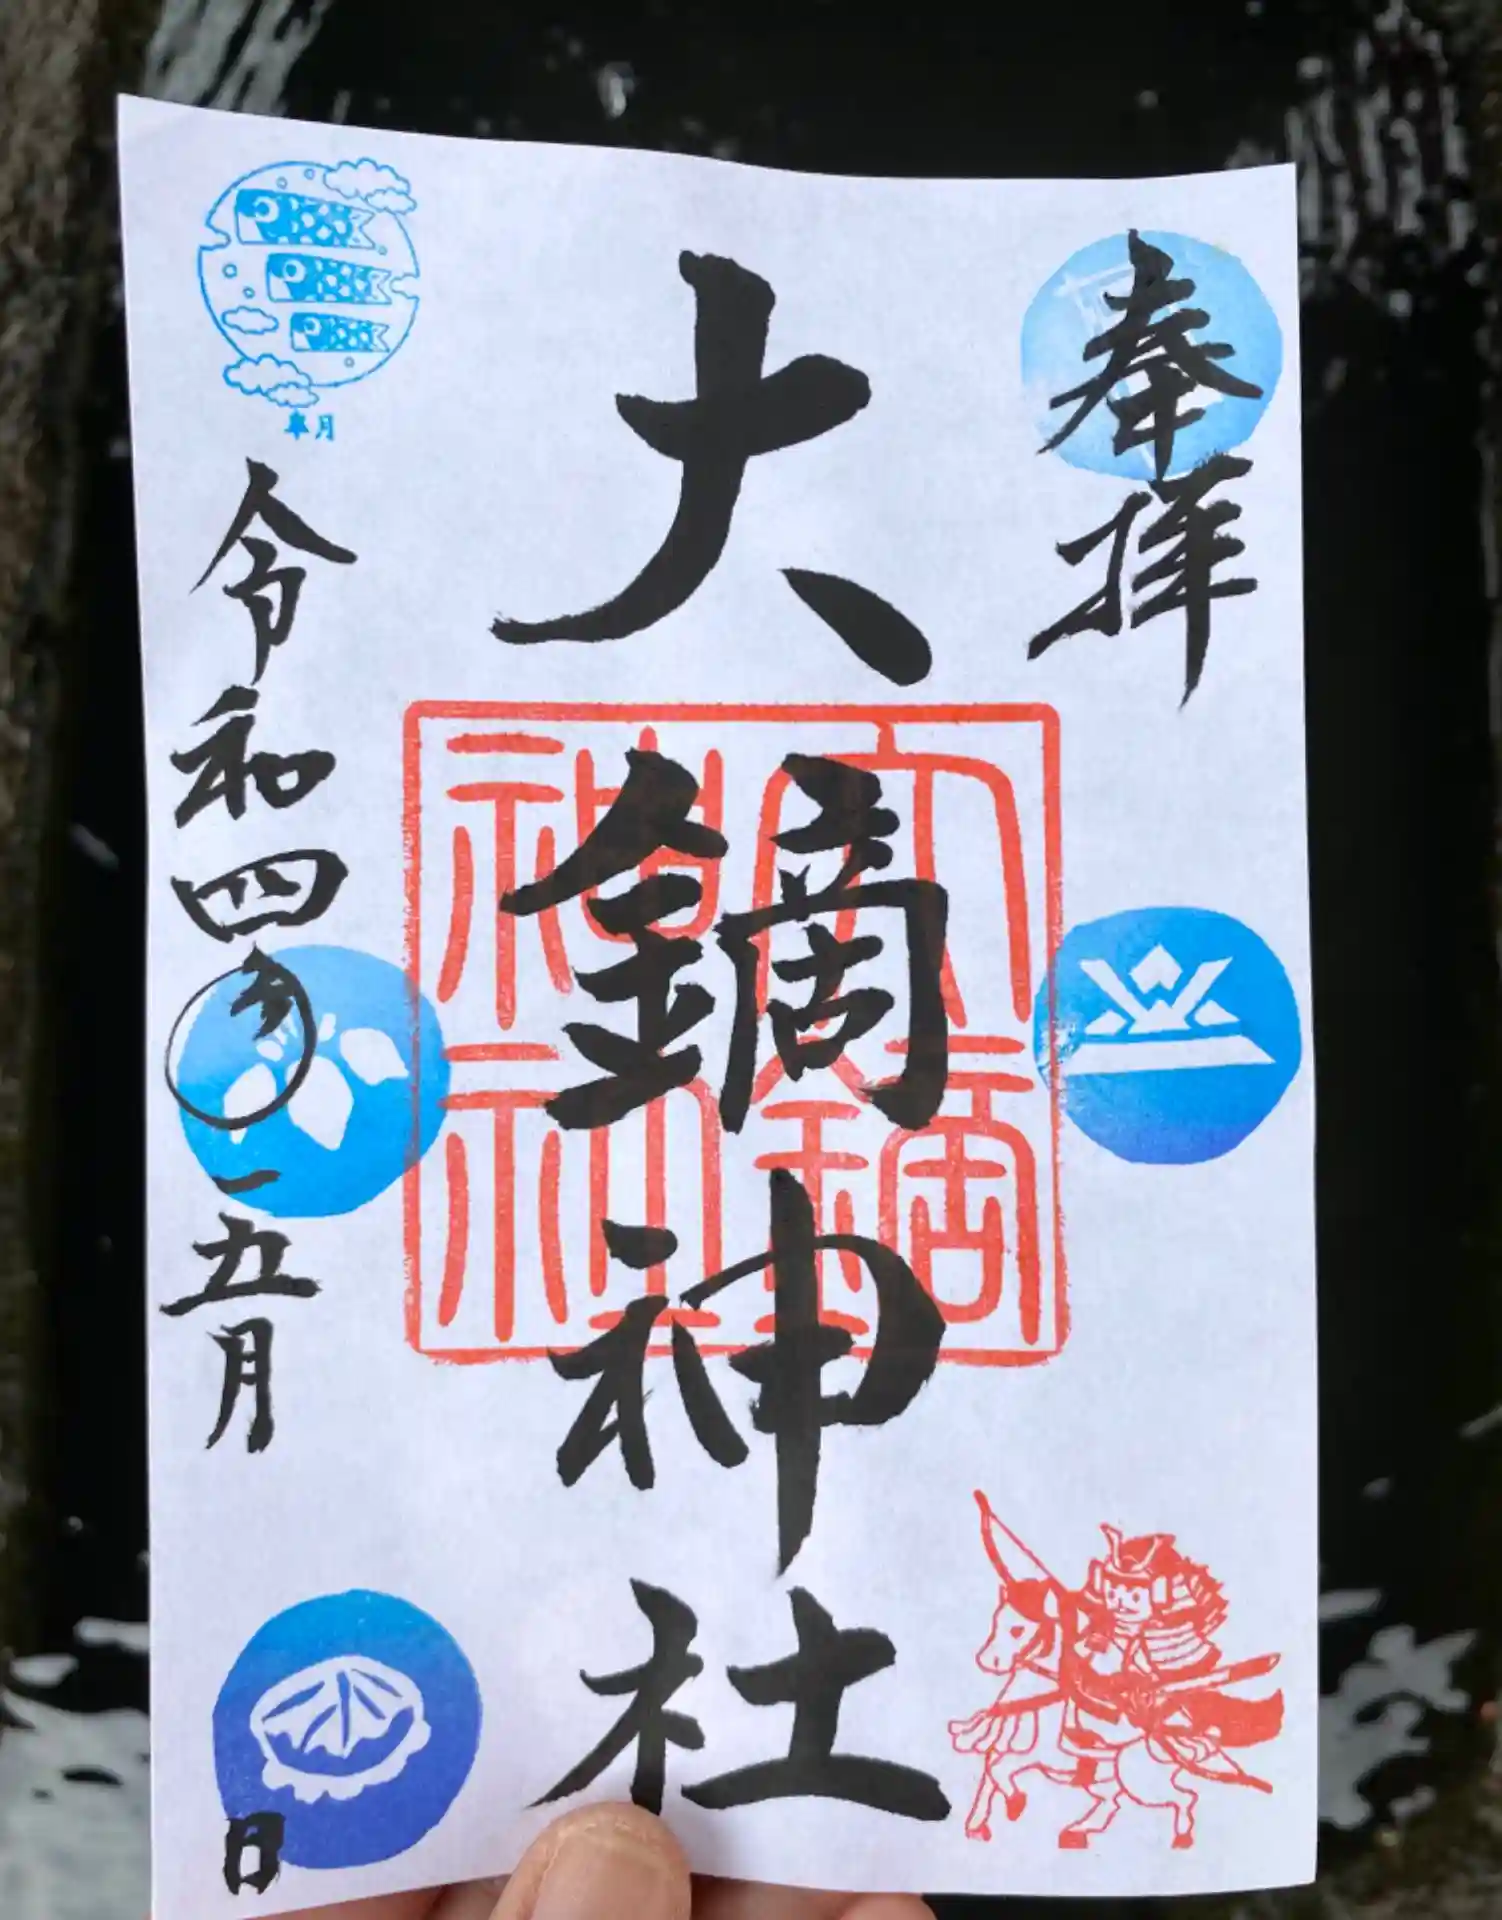 奉拝
大鏑神社
大鏑
神社
皐月
令和四年五月
日